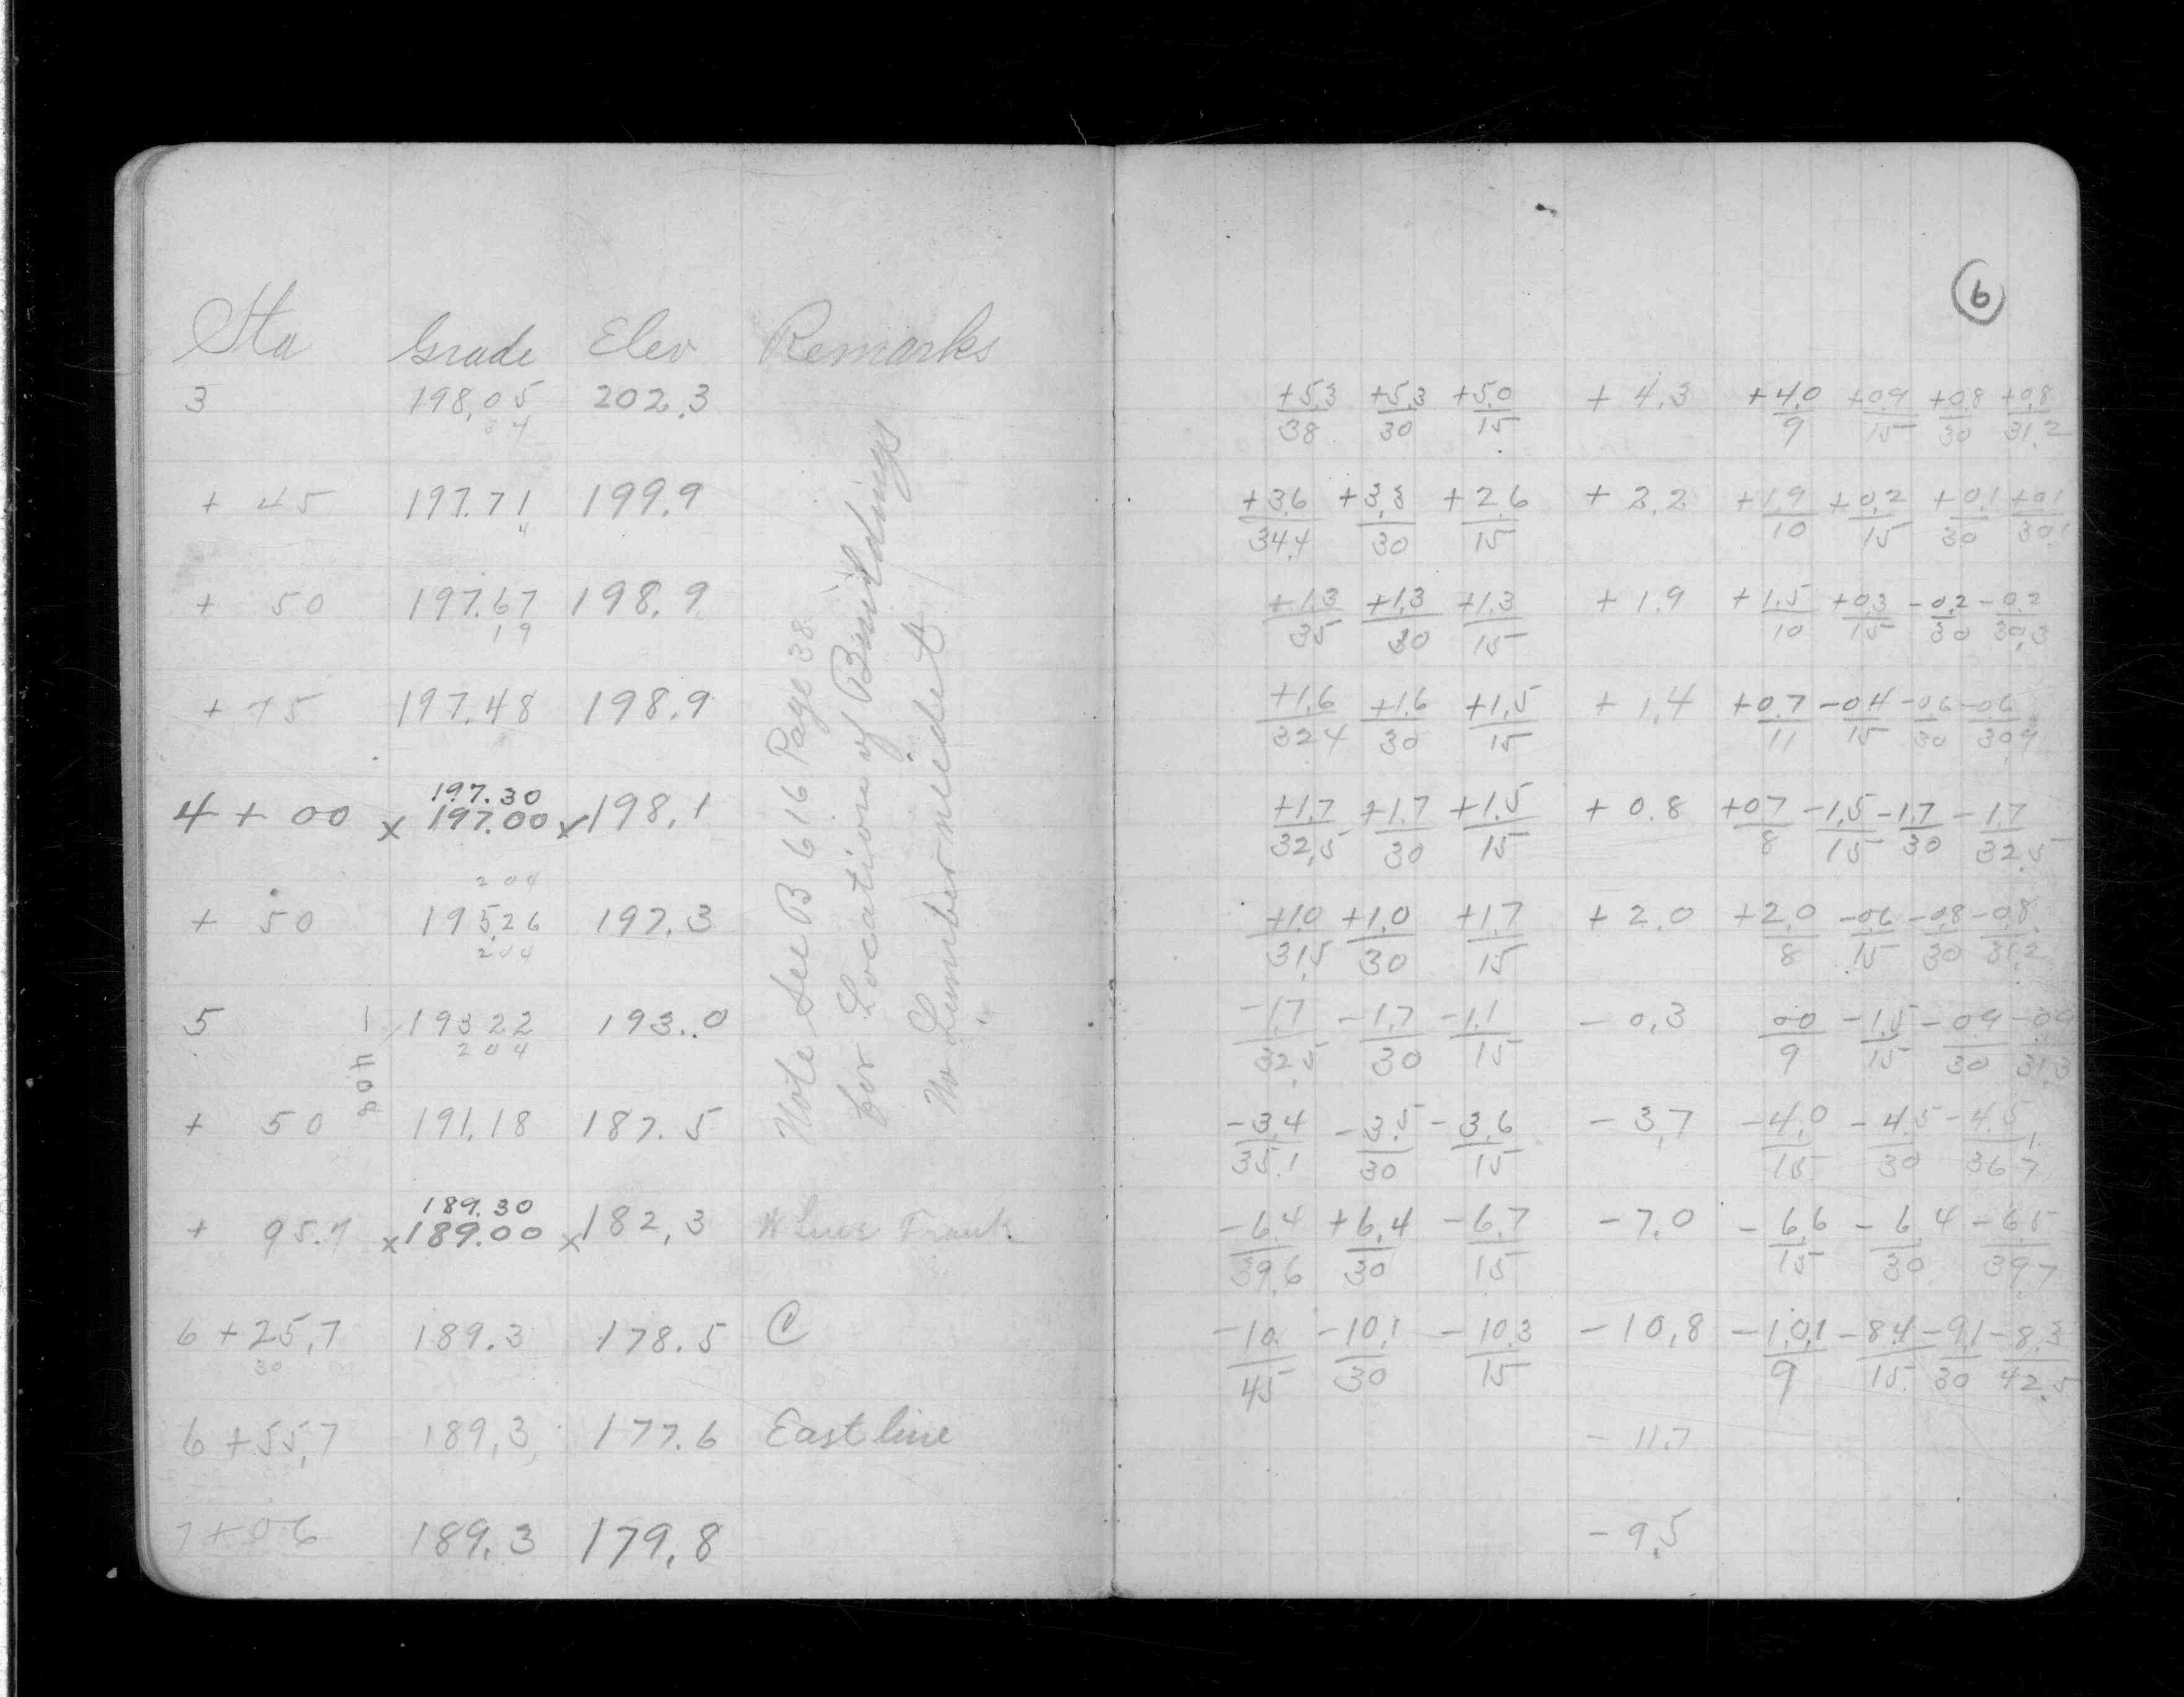 6
Sta Grade Elev Remarks
3 198.05 202.3
34
+ 45 197.71 199.9
4
+ 50 197.67 198.9
19
+ 75 197.48 198.9
197.30
4 + 00 x 197.00 x 198.1
204
+ 50 195.26 197.3
204
5 193.22 193.0
204
+ 50 191.18 187.5
189.30
+ 95.7 x 189.00 x 182.3 W line Frank
6 + 25.7 189.3 178.5 C
30
6 + 55.7 189.3 177.6 East line
7 + 06 189.3 179.8
Note See B 616 Page 38
for Location of Buildings
No Lumber needed
+5.3 +5.3 +5.0 + 4.3 +4.0 +0.9 +0.8 +0.8
38 30 15 9 15 30 31.2
+3.6 +3.3 +2.6 + 2.2 +1.9 +0.2 +0.1 +0.1
34.4 30 15 10 15 30 30.1
+1.3 +1.3 +1.3 + 1.9 +1.5 +0.3 -0.2 -0.2
35 30 15 10 15 30 30.3
+1.6 +1.6 +1.5 + 1.4 +0.7 -0.4 -0.6 -0.6
32.4 30 15 11 15 30 30.9
+1.7 +1.7 +1.5 + 0.8 +0.7 -1.5 -1.7 -1.7
32.5 30 15 8 15 30 32.5
+1.0 +1.0 +1.7 + 2.0 +2.0 -0.6 -0.8 -0.8
31.5 30 15 8 15 30 31.2
-1.7 -1.7 -1.1 - 0.3 00 -1.5 -0.9 -0.9
32.5 30 15 9 15 30 31.3
-3.4 -3.5 -3.6 - 3.7 -4.0 -4.5 -4.5
35.1 30 15 15 30 36.7
-6.4 +6.4 -6.7 -7.0 -6.6 -6.4 -6.5
39.6 30 15 15 30 39.7
-10. -10.1 -10.3 -10.8 -10.1 -8.4 -9.1 -8.3
45 30 15 9 15 30 42.5
- 11.7
- 9.5